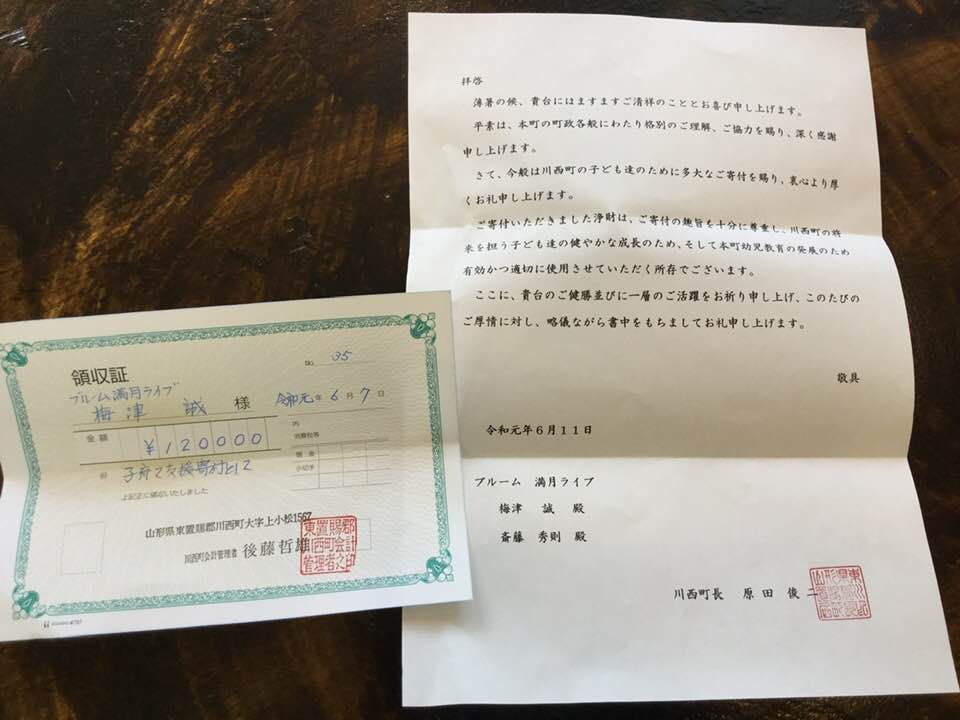 領収証
No. 35
ブルーム満月ライブ
梅津 誠 様
令和元年6月7日
金額
¥120000
内
消費税等
現金
小切手
但 子育て支援寄付として
上記正に領収いたしました
山形県東置賜郡川西町大字上小松1567
川西町会計管理者 後藤哲雄
東置賜郡川西町会計管理者之印
拝啓
薄暑の候、貴台にはますますご清祥のこととお喜び申し上げます。
平素は、本町の町政各般にわたり格別のご理解、ご協力を賜り、深く感謝
申し上げます。
さて、今般は川西町の子ども達のために多大なご寄付を賜り、衷心より厚
くお礼申し上げます。
ご寄付いただきました浄財は、ご寄付の趣旨を十分に尊重し、川西町の将
来を担う子ども達の健やかな成長のため、そして本町幼児教育の発展のため
有効かつ適切に使用させていただく所存でございます。
ここに、貴台のご健勝並びに一層のご活躍をお祈り申し上げ、このたびの
ご厚情に対し、略儀ながら書中をもちましてお礼申し上げます。
敬具
令和元年6月11日
ブルーム 満月ライブ
梅津 誠 殿
斎藤 秀則 殿
川西町長 原田 俊二